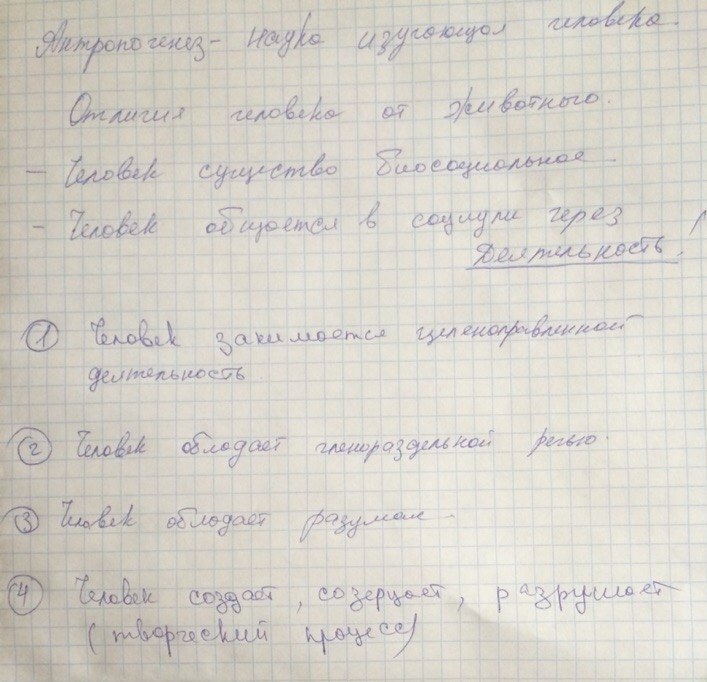 Антропогенез - наука изучающая человека.
Отличия человека от животного.
- Человек существо биосоциальное
- Человек общается в социуме через
Деятельность.
① Человек занимается целенаправленной
деятельность.
② Человек обладает членораздельной речью.
③ Человек обладает разумом
④ Человек создаёт, созерцает, разрушает
(творческий процесс)